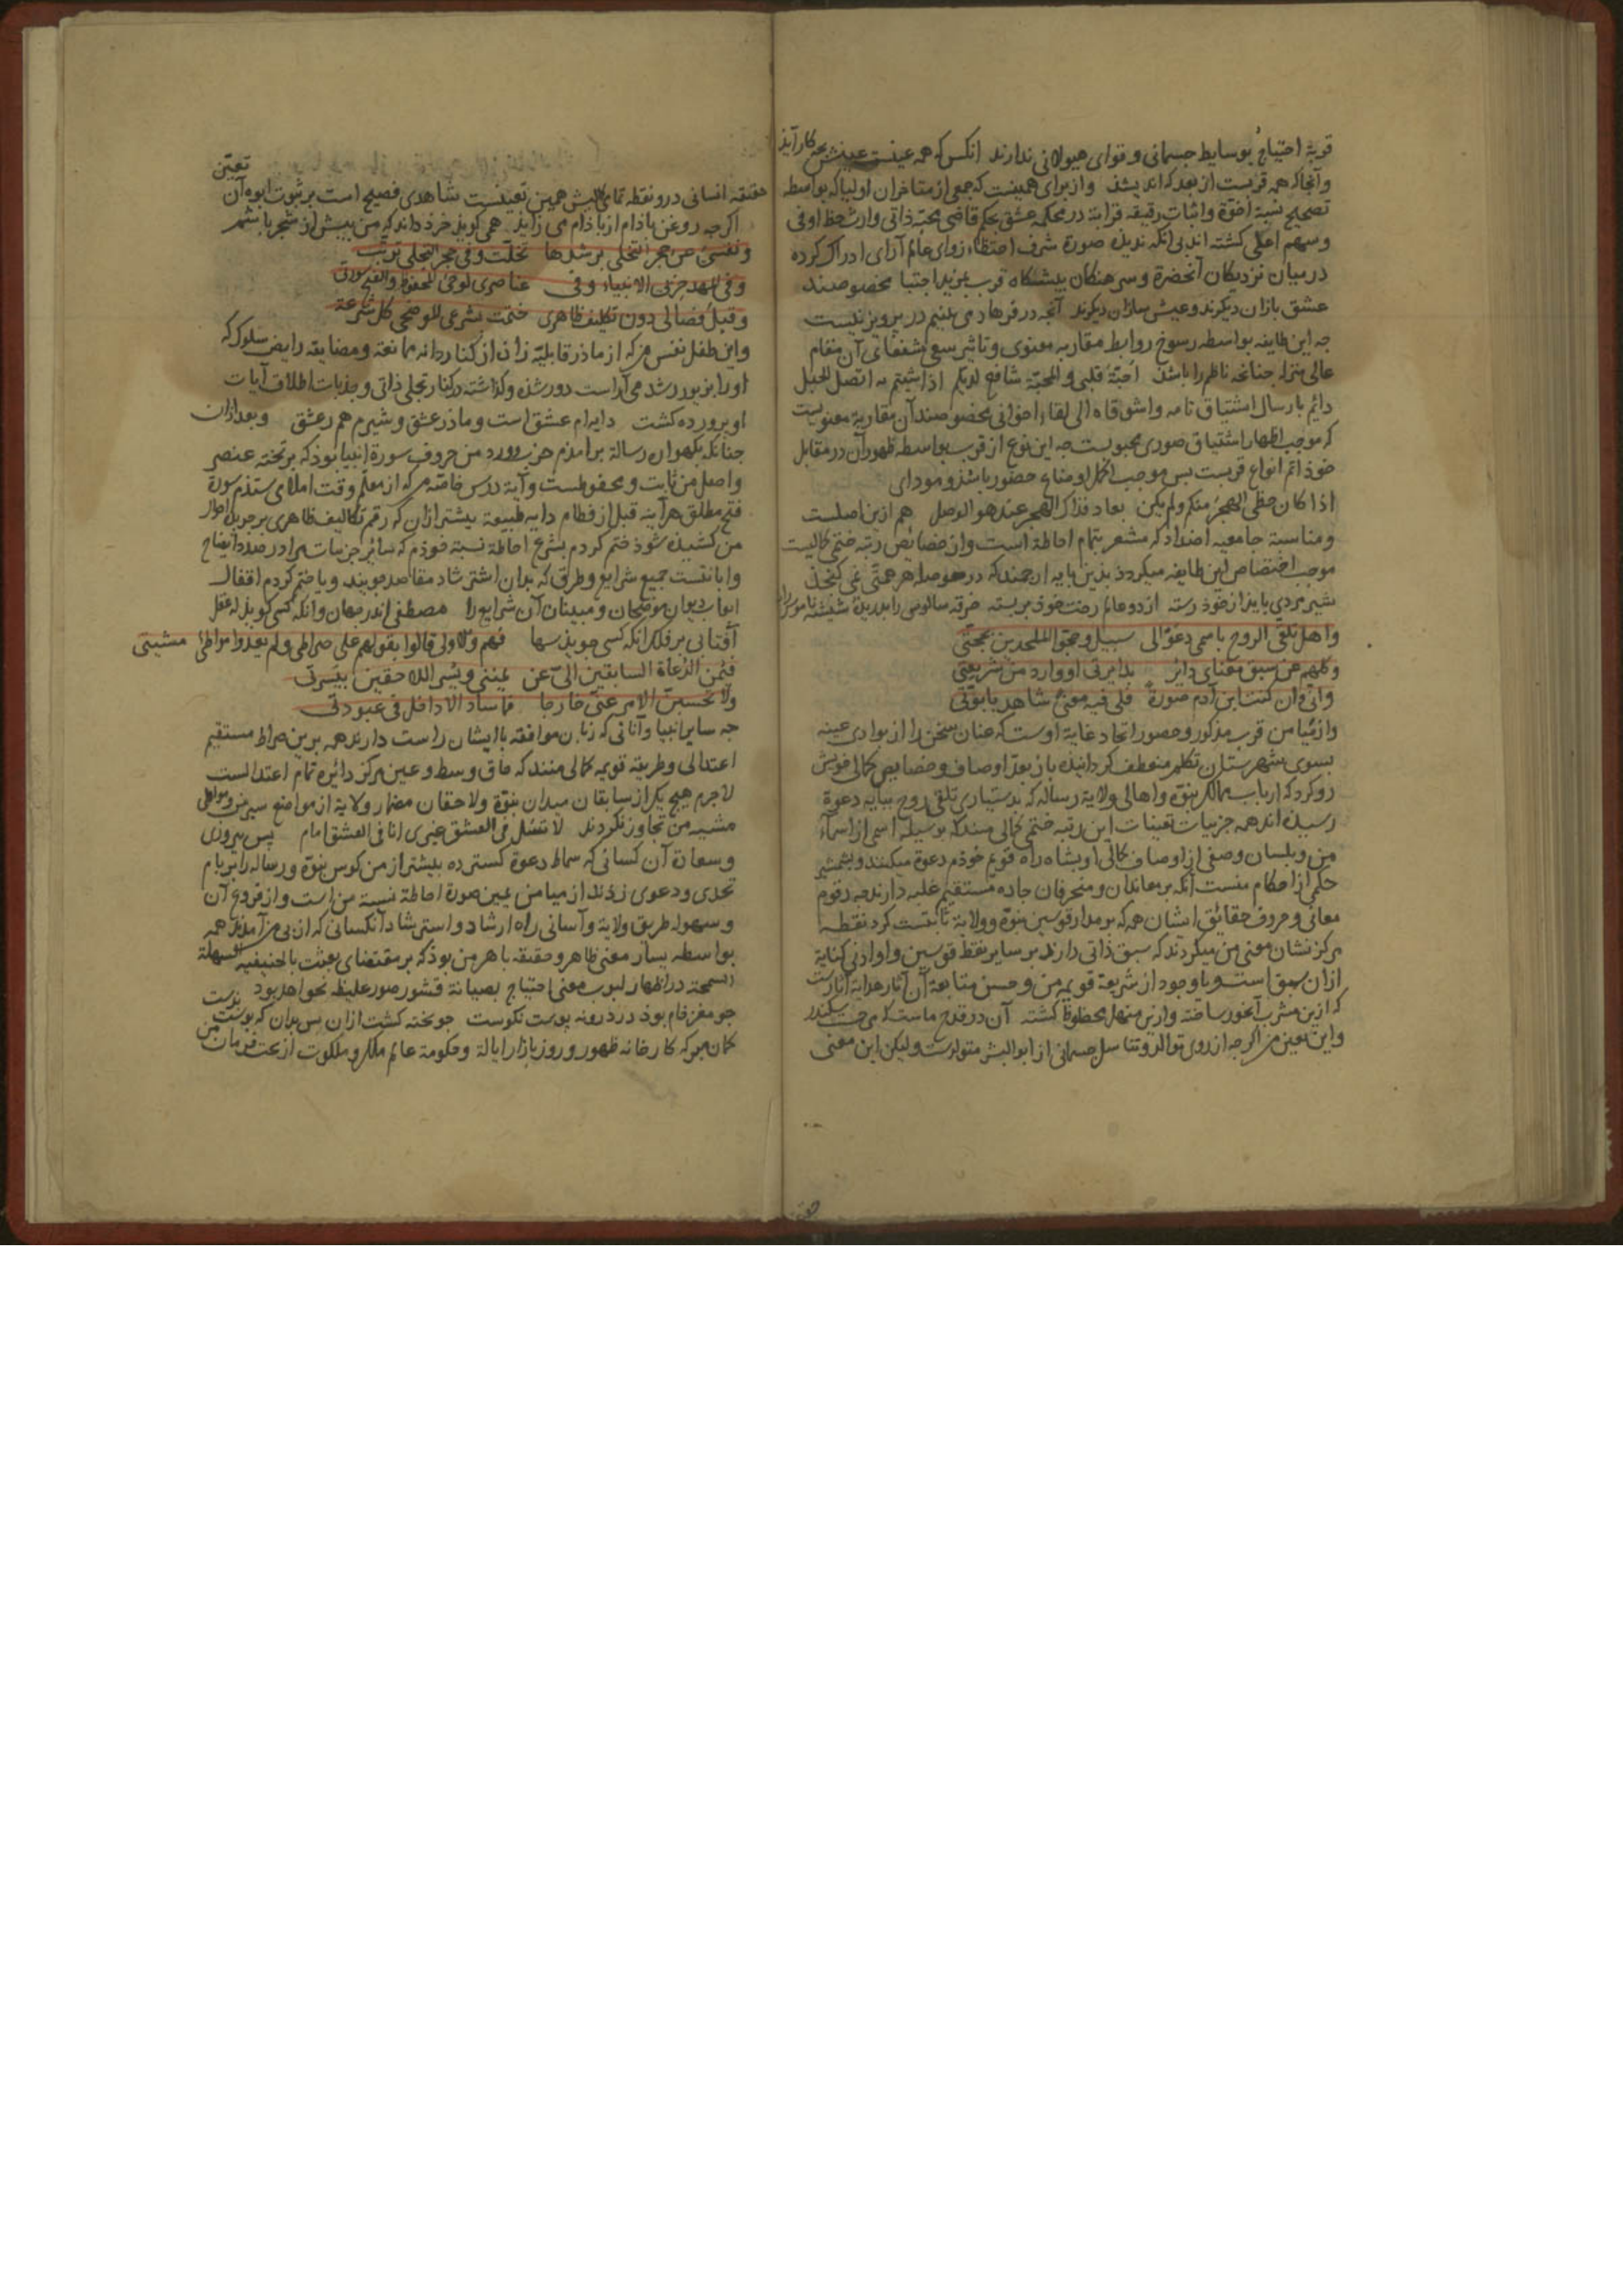 قربة احتیاج بوسایط جسمانی و قوای هیولانی ندارند انکس که همه عینست عینش بچه کار آیذ
و آنجا که همه قربست از بعد که اندیشذ و از برای همینست که جمعی از متاخران اولیا که بواسطه
تصحیح نسبة اخوّة و اثبات رقیقه قرابة در محکمه عشق بحکم قاضی محبّة ذاتی وارث حظ اوفی
و سهم اعلی کشته اند بی انکه بدیذه صورة شرف احتظاء از وای عالم آرای ادراک کرده
در میان نزدیکان آنحضرة و سرهنکان پیشکاه قرب بمزید اجتبا مخصوصند
عشق بازان دیکرند و عیش سازان دیکرند آنچه در فرهاد می بینیم در پرویز نیست
جه این طایفه بواسطه رسوخ روابط مقاربه معنوی و تاثیر سبع آن مقام
عالی منزله جنانجه ناظم را باشذ احبّة قلبی و المحبّة شافعی لدیکم اذا شیتم به اتصل الحبل
دائم بارسال اشتیاق نامه واشوقاه الی لقاء اخوانی مخصوصند آن مقاربه معنویست
که موجب اظهار اشتیاق صوری محبوبست جه این نوع از قرب بواسطه ظهور آن در مقابل
خوذ اتم انواع قربست بس موجب اکمل اوضاع حضور باشذ و موذای
اذا کان حظی الهجر منکم و لم یکن بعاد فذاک الهجر عندی هو الوصل هم ازین اصلست
و مناسبة جامعیه اضداد که مشعر بتمام احاطة است و از خصائص رتبه ختمی کمالیست
موجب اختصاص این طایفه میکردذ بذین پایه ارجمند که در حوصله هر همتی نمی کنجذ
شیر مردی بایذ از خوذ رسته از دو عالم رخت خوذ بربسته خرقه سالوس را بدریذه شیشه ناموس را
و اهل تلقی الروح باسمی دعوا الی سبیلی و حجّوا الملحدین بحجتی
و کلهم عن سبق معنای دائر بدائرتی او وارد من شریعتی
و انّی و ان کنت ابن آدم صورة فلی فیه معنی شاهد بابوّتی
و از میامن قرب مذکور و حضور اتحاد غایة اوست که عنان سخن را از بوادی غیبه
بسوی شهرستان تکلم منعطف کردانیذه باز بعد اوصاف و خصایص کمالی خویش
رو کرد که ارباب ممالک نبوّة و اهالی ولایة رسالة که بدستیاری تلقی روح بپایه دعوة
رسیذه اند همه جزییات تعینات این رتبه ختمی کمالی منند که بوسیله اسمی از اسماء
من و بلسان وصفی از اوصاف کمالی او بشاه راه قویم خوذم دعوة میکنند و بشمشیر
حکمی از احکام منست آنکه بر معاندان و منحرفان جاده مستقیم غلبه دارند جه رقوم
معانی و حروف حقائق ایشان همه که بر مدار قوسین نبوّة و ولایة ثابتست کرد نقطه
مرکز نشان معنی من میکردند که سبق ذاتی دارند بر سایر نقط قوسین و او ادنی کنایة
از ان سبق است و باوجود از شریعة قویمه من و حسن متابعة آن آثار هدایة آثارست
که ازین مشرب آبخور ساخته و ازین منهل محظوظ کشته آن در قدح ماست که می جست سکندر
و این تعین من اکرجه از روی توالد و تناسل جسمانی از ابوالبشر متولدست و لیکن این معنی
تعیّن
حقیقه انسانی درو نقطه تمامی کمالیش همین تعینست شاهدی فصیح است بر ثبوت ابوه آن
اکرجه روغن باذام از باذام می زایذ همی کویذ خرذ داند که من پیش از شجر باشم
و نفسی عن حجر التحلی برشدها تخلّت و فی حجر التجلی تربّت
و فی المهد حزبی الانبیاء و فی عناصری لوحی المحفوظ و الفتح سورتی
و قبل فصالی دون تکلیف ظاهری ختمت بشرعی الموضحی کل شرعة
و این طفل نفس من که از ماذر قابلیّه زاذ از کنار دایه ممانعة و مضایقه رایض سلوک که
او را بزیور رشد می آراست دور شذه و کذاشته در کنار تجلی ذاتی و جذبات اطلاق آیات
او پرورده کشت دایه ام عشق است و ماذر عشق و شیرم هم ز عشق و بعد از ان
جنانکه بکهواره رسالة برآمذم حزب و ورد من حروف سورة انبیا بوذ که بر تخته عنصر
و اصل من ثابت و محفوظست و آیة درس خاصّه من که از معلّم وقت املا می ستذم سورة
فتح مطلق هرآینه قبل از فطام دایه طبیعة پیشتر از ان که رقم تکالیف ظاهری بر جریده احوال
من کشیذه شوذ ختم کردم بشرع احاطة نسبة خوذم که سائر جزییات مرا در صدد ایضاح
و ابانتست جمیع شرایع و طرق که بدان استرشاد مقاصد جویند و یا ختم کردم اقفال
ابواب دیوان موضحان و مبینان آن شرایع را مصطفی اندر جهان وانکه کسی کویذ که عقل
آفتابی بر فلک انکه کسی جویذ سها فهم و الاولی قالوا بقولهم علی صراطی و لم یعدوا مواطی مشیتی
فیمن الدعاة السابقین الیّ عن یمینی و یسر اللاحقین بیسرتی
و لا تحسبنّ الامر عنّی خارجا فما ساد الا داخل فی عبودتی
جه سایر انبیا و آنانی که زبان موافقه با ایشان راست دارند همه برین صراط مستقیم
اعتدالی و طریقه قویمه کمالی منند که حاق وسط و عین مرکز دائره تمام اعتدالست
لاجرم هیج یک از سابقان میدان نبوّة و لاحقان مضمار ولایة از مواضع سیر من و مواطی
مشیه من تجاوز نکردند لا تسئل فی العشق غیری انا فی العشق امام پس پیروزی
و سعادة آن کسانی که سماط دعوة کسترده پیشتر از من کوس نبوّة و رسالة را بر بام
تحدی و دعوی زذند از میامن یمین صورة احاطة نسبة من است و از فروع آن
و سهولة طریق ولایة و آسانی راه ارشاد و استرشاد آنکسانی که از پی من آمذند همه
بواسطه یسار معنی ظاهر و حقیقه باهر من بوذ که بر مقتضای بعثت بالحنیفیه السهلة
السمحة در اظهار لبوب معنی احتیاج بصیانة قشور صور غلیظ نخواهد بود
جو مغز خام بوذ در درونه پوست نکوست جو پخته کشت از ان پس بدان که پوست بدست
کمان مبر که کارخانه ظهور و روز بازار ایالة و حکومة عالم ملک و ملکوت از تحت فرمان من